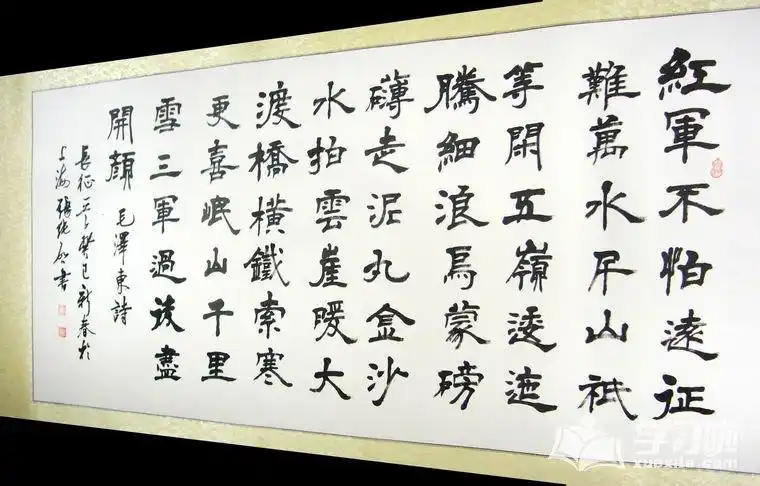 紅軍不怕遠征
難萬水千山祇
等閑五嶺逶迤
騰細浪烏蒙磅
礴走泥丸金沙
水拍雲崖暖大
渡橋橫鐵索寒
更喜岷山千里
雪三軍過後盡
開顏 毛澤東詩
長征 癸巳新春於
上海張 書
学习啦
xuexila.com